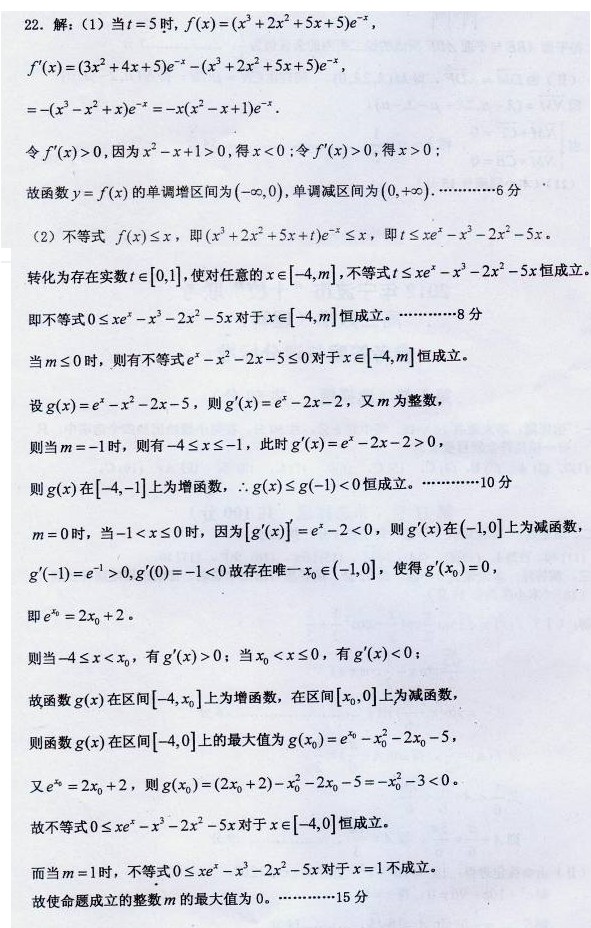 22. 解:(1)当t=5时, f(x)=(x³+2x²+5x+5)e⁻ˣ,
f′(x)=(3x²+4x+5)e⁻ˣ-(x³+2x²+5x+5)e⁻ˣ,
=-(x³-x²+x)e⁻ˣ=-x(x²-x+1)e⁻ˣ.
令f′(x)>0,因为x²-x+1>0,得x<0;令f′(x)>0,得x>0;
故函数y=f(x)的单调增区间为(-∞,0),单调减区间为(0,+∞).…………6分
(2)不等式 f(x)≤x,即(x³+2x²+5x+t)e⁻ˣ≤x,即t≤xeˣ-x³-2x²-5x。
转化为存在实数t∈[0,1],使对任意的x∈[-4,m],不等式t≤xeˣ-x³-2x²-5x恒成立。
即不等式0≤xeˣ-x³-2x²-5x对于x∈[-4,m]恒成立。…………8分
当m≤0时,则有不等式eˣ-x²-2x-5≤0对于x∈[-4,m]恒成立。
设g(x)=eˣ-x²-2x-5,则g′(x)=eˣ-2x-2,又m为整数,
则当m=-1时,则有-4≤x≤-1,此时g′(x)=eˣ-2x-2>0,
则g(x)在[-4,-1]上为增函数,∴g(x)≤g(-1)<0恒成立。…………10分
m=0时,当-1<x≤0时,因为[g′(x)]′=eˣ-2<0,则g′(x)在(-1,0]上为减函数,
g′(-1)=e⁻¹>0,g′(0)=-1<0故存在唯一x₀∈(-1,0],使得g′(x₀)=0,
即eˣ⁰=2x₀+2。
则当-4≤x<x₀,有g′(x)>0;当x₀<x≤0,有g′(x)<0;
故函数g(x)在区间[-4,x₀]上为增函数,在区间[x₀,0]上为减函数,
则函数g(x)在区间[-4,0]上的最大值为g(x₀)=eˣ⁰-x₀²-2x₀-5,
又eˣ⁰=2x₀+2,则g(x₀)=(2x₀+2)-x₀²-2x₀-5=-x₀²-3<0。
故不等式0≤xeˣ-x³-2x²-5x对于x∈[-4,0]恒成立。
而当m=1时,不等式0≤xeˣ-x³-2x²-5x对于x=1不成立。
故使命题成立的整数m的最大值为0。…………15分